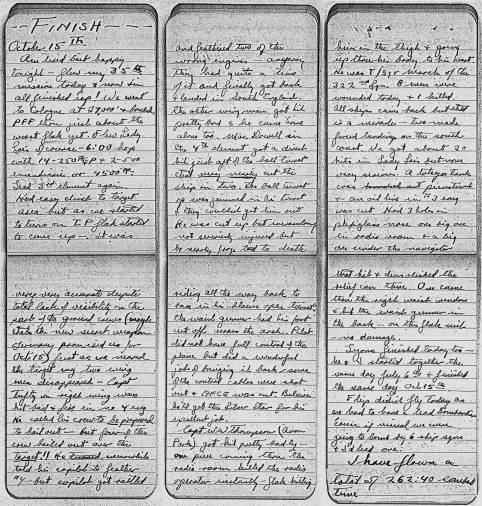 --FINISH--
October 15th
Am tired but happy
tonight - flew my 35th
mission today & now im
all finished up! We went
to Cologne at 27000' & bombed
PFF thru just about the
worst flak yet. Flew Lady
Lois of course - 6:00 hops
with 14-250# GP & 2-500
incendiaries or 4500#.
Led 3rd element again.
Had easy climb to target
area but as we started
to turn on I.P. flak started
to come up - it was
very very accurate despite
total lack of visibility on the
part of the ground crews (maybe
its the new secret weapon
Germany promised us for
Oct 15) Just as we neared
the target my two wing
men disappeared - Capt
Tufty on right wing was
hit bad & fire in no 4 eng
He called his crew to be prepared
to bail out - but four of the
crew bailed out over the
target!! He meanwhile
told his copilot to feather
#4 - but copilot got rattled
and feathered two of the
wrong engines - anyway
they had quite a time
of it and finally got back
& landed in South England.
the other wing man got hit
pretty bad & he came home
alone too. Mac Dowell in
the 4th element got a direct
hit just aft of the ball turret
that very nearly cut the
ship in two. The ball turret
op was jammed in his turret
& they couldnt get him out
He was cut up but
not seriously injured but
he nearly froze to death
riding all the way back to
base in his blown open turret
the waist gunner had his foot
cut off near the ankle. Pilot
did not have full control of the
plane but did a wonderful
job of bringing it back - some
of the control cables were shot
out & AFCE was out. Believe
he'll get the Silver Star for his
excellent job.
Capt W. Thompson (Avon
Park) got hit pretty badly -
one piece coming thru the
radio room killed the radio
operator instantly - flak hitting
him in the thigh & going
up thru his body to his heart.
He was T/Sgr March of the
322nd Sqn. 8 men were
wounded today & 1 killed.
All ships came back but that
is a miracle - two made
forced landing on the south
coast. We got about 20
hits in Lady Lois but none
very serious. A tokyo tank
was punctured
& an oil line in #3 eng
was cut. Had 3 holes in
plexiglass nose one big one
in radio room & a big
one under the navigator
that hit & demolished the
relief can there. One came
thru the right waist window
& hit the waist gunner in
the back - on the flak suit
- no damage.
Lyons finished today too -
he & I started together the
same day July 6th & finished
the same day Oct 15th
Ships didnt fly today as
we had to have a lead Bombardier
Course if visual we were
going to bomb by 6 ship sqns
& I'd lead one.
I have flown a
total of 262:40 - combat
time